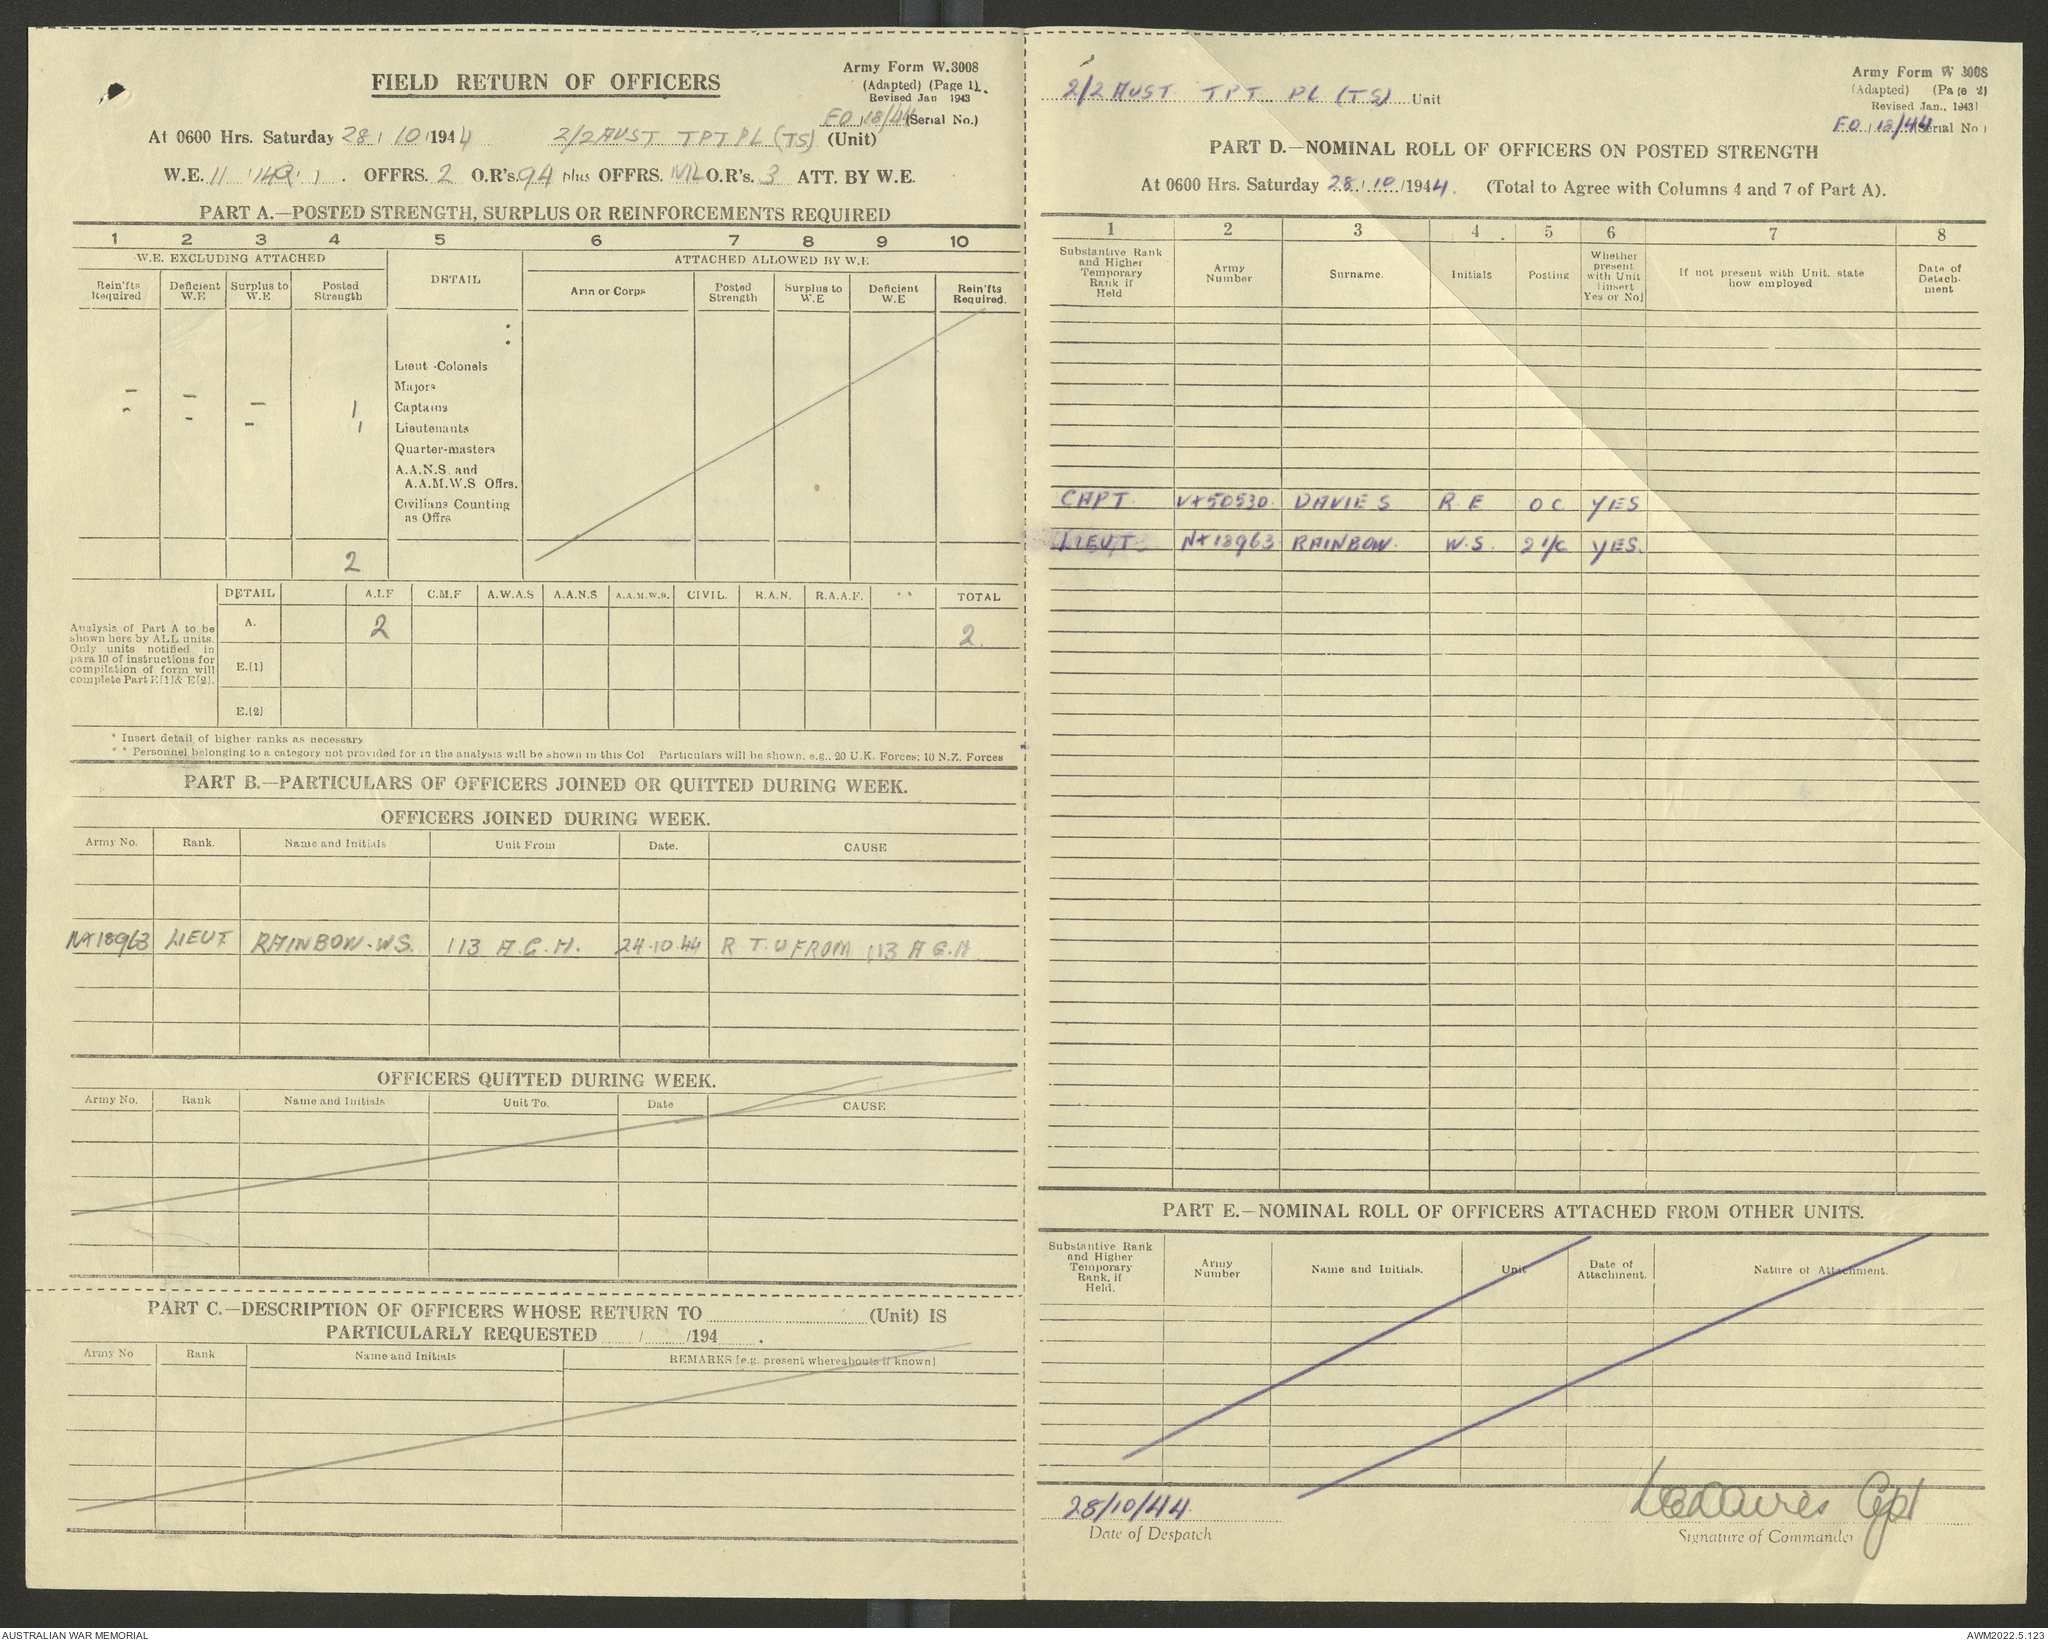 FIELD RETURN OF OFFICERS
Army Form W.3008
(Adapted) (Page 1).
Revised Jan 1943
FO 18/44 (Serial No.)
At 0600 Hrs. Saturday 28/10/1944 2/2 AUST TPT PL (TS) (Unit)
W.E. 11 OFFRS. 2 O.R's. 94 plus OFFRS. NIL O.R's. 3 ATT. BY W.E.
PART A.—POSTED STRENGTH, SURPLUS OR REINFORCEMENTS REQUIRED
1 2 3 4 5 6 7 8 9 10
W.E. EXCLUDING ATTACHED
DETAIL
ATTACHED ALLOWED BY W.E
Rein'fts Required
Deficient W.E
Surplus to W.E
Posted Strength
Arm or Corps
Posted Strength
Surplus to W.E
Deficient W.E
Rein'fts Required.
Lieut -Colonels
Majors
- - - 1 Captains
- - - 1 Lieutenants
Quarter-masters
A.A.N.S. and
A.A.M.W.S Offrs.
Civilians Counting
as Offrs
2
DETAIL A.I.F C.M.F A.W.A.S A.A.N.S A.A.M.W.S. CIVIL. R.A.N. R.A.A.F. ** TOTAL
Analysis of Part A to be
shown here by ALL units.
Only units notified in
para 10 of instructions for
compilation of form will
complete Part E[1]& E[2].
A. 2 2.
E.[1]
E.[2]
* Insert detail of higher ranks as necessary
* * Personnel belonging to a category not provided for in the analysis will be shown in this Col Particulars will be shown, e.g., 20 U.K. Forces; 10 N.Z. Forces
PART B.—PARTICULARS OF OFFICERS JOINED OR QUITTED DURING WEEK.
OFFICERS JOINED DURING WEEK.
Army No. Rank. Name and Initials Unit From Date. CAUSE
NX18963 LIEUT. RAINBOW. W.S. 113 A.G.H. 24.10.44 R T U FROM 113 A G.H
OFFICERS QUITTED DURING WEEK.
Army No. Rank Name and Initials Unit To. Date CAUSE
PART C.—DESCRIPTION OF OFFICERS WHOSE RETURN TO (Unit) IS
PARTICULARLY REQUESTED / /194 .
Army No Rank Name and Initials REMARKS [e.g. present whereabouts if known]
2/2 AUST TPT PL (TS) Unit
Army Form W 3008
(Adapted) (Page 2)
Revised Jan., 1943]
FO 18/44 Serial No
PART D.—NOMINAL ROLL OF OFFICERS ON POSTED STRENGTH
At 0600 Hrs. Saturday 28/10/1944. (Total to Agree with Columns 4 and 7 of Part A).
1 2 3 4 5 6 7 8
Substantive Rank and Higher Temporary Rank if Held
Army Number
Surname.
Initials
Posting
Whether present with Unit [insert Yes or No]
If not present with Unit, state how employed
Date of Detachment
CAPT. VX50530. DAVIES R.E OC YES
LIEUT. NX18963 RAINBOW. W.S. 2 I/C YES.
PART E.—NOMINAL ROLL OF OFFICERS ATTACHED FROM OTHER UNITS.
Substantive Rank and Higher Temporary Rank, if Held.
Army Number
Name and Initials.
Unit
Date of Attachment.
Nature of Attachment.
28/10/44.
Date of Despatch
Capt
Signature of Commander
AUSTRALIAN WAR MEMORIAL
AWM2022.5.123